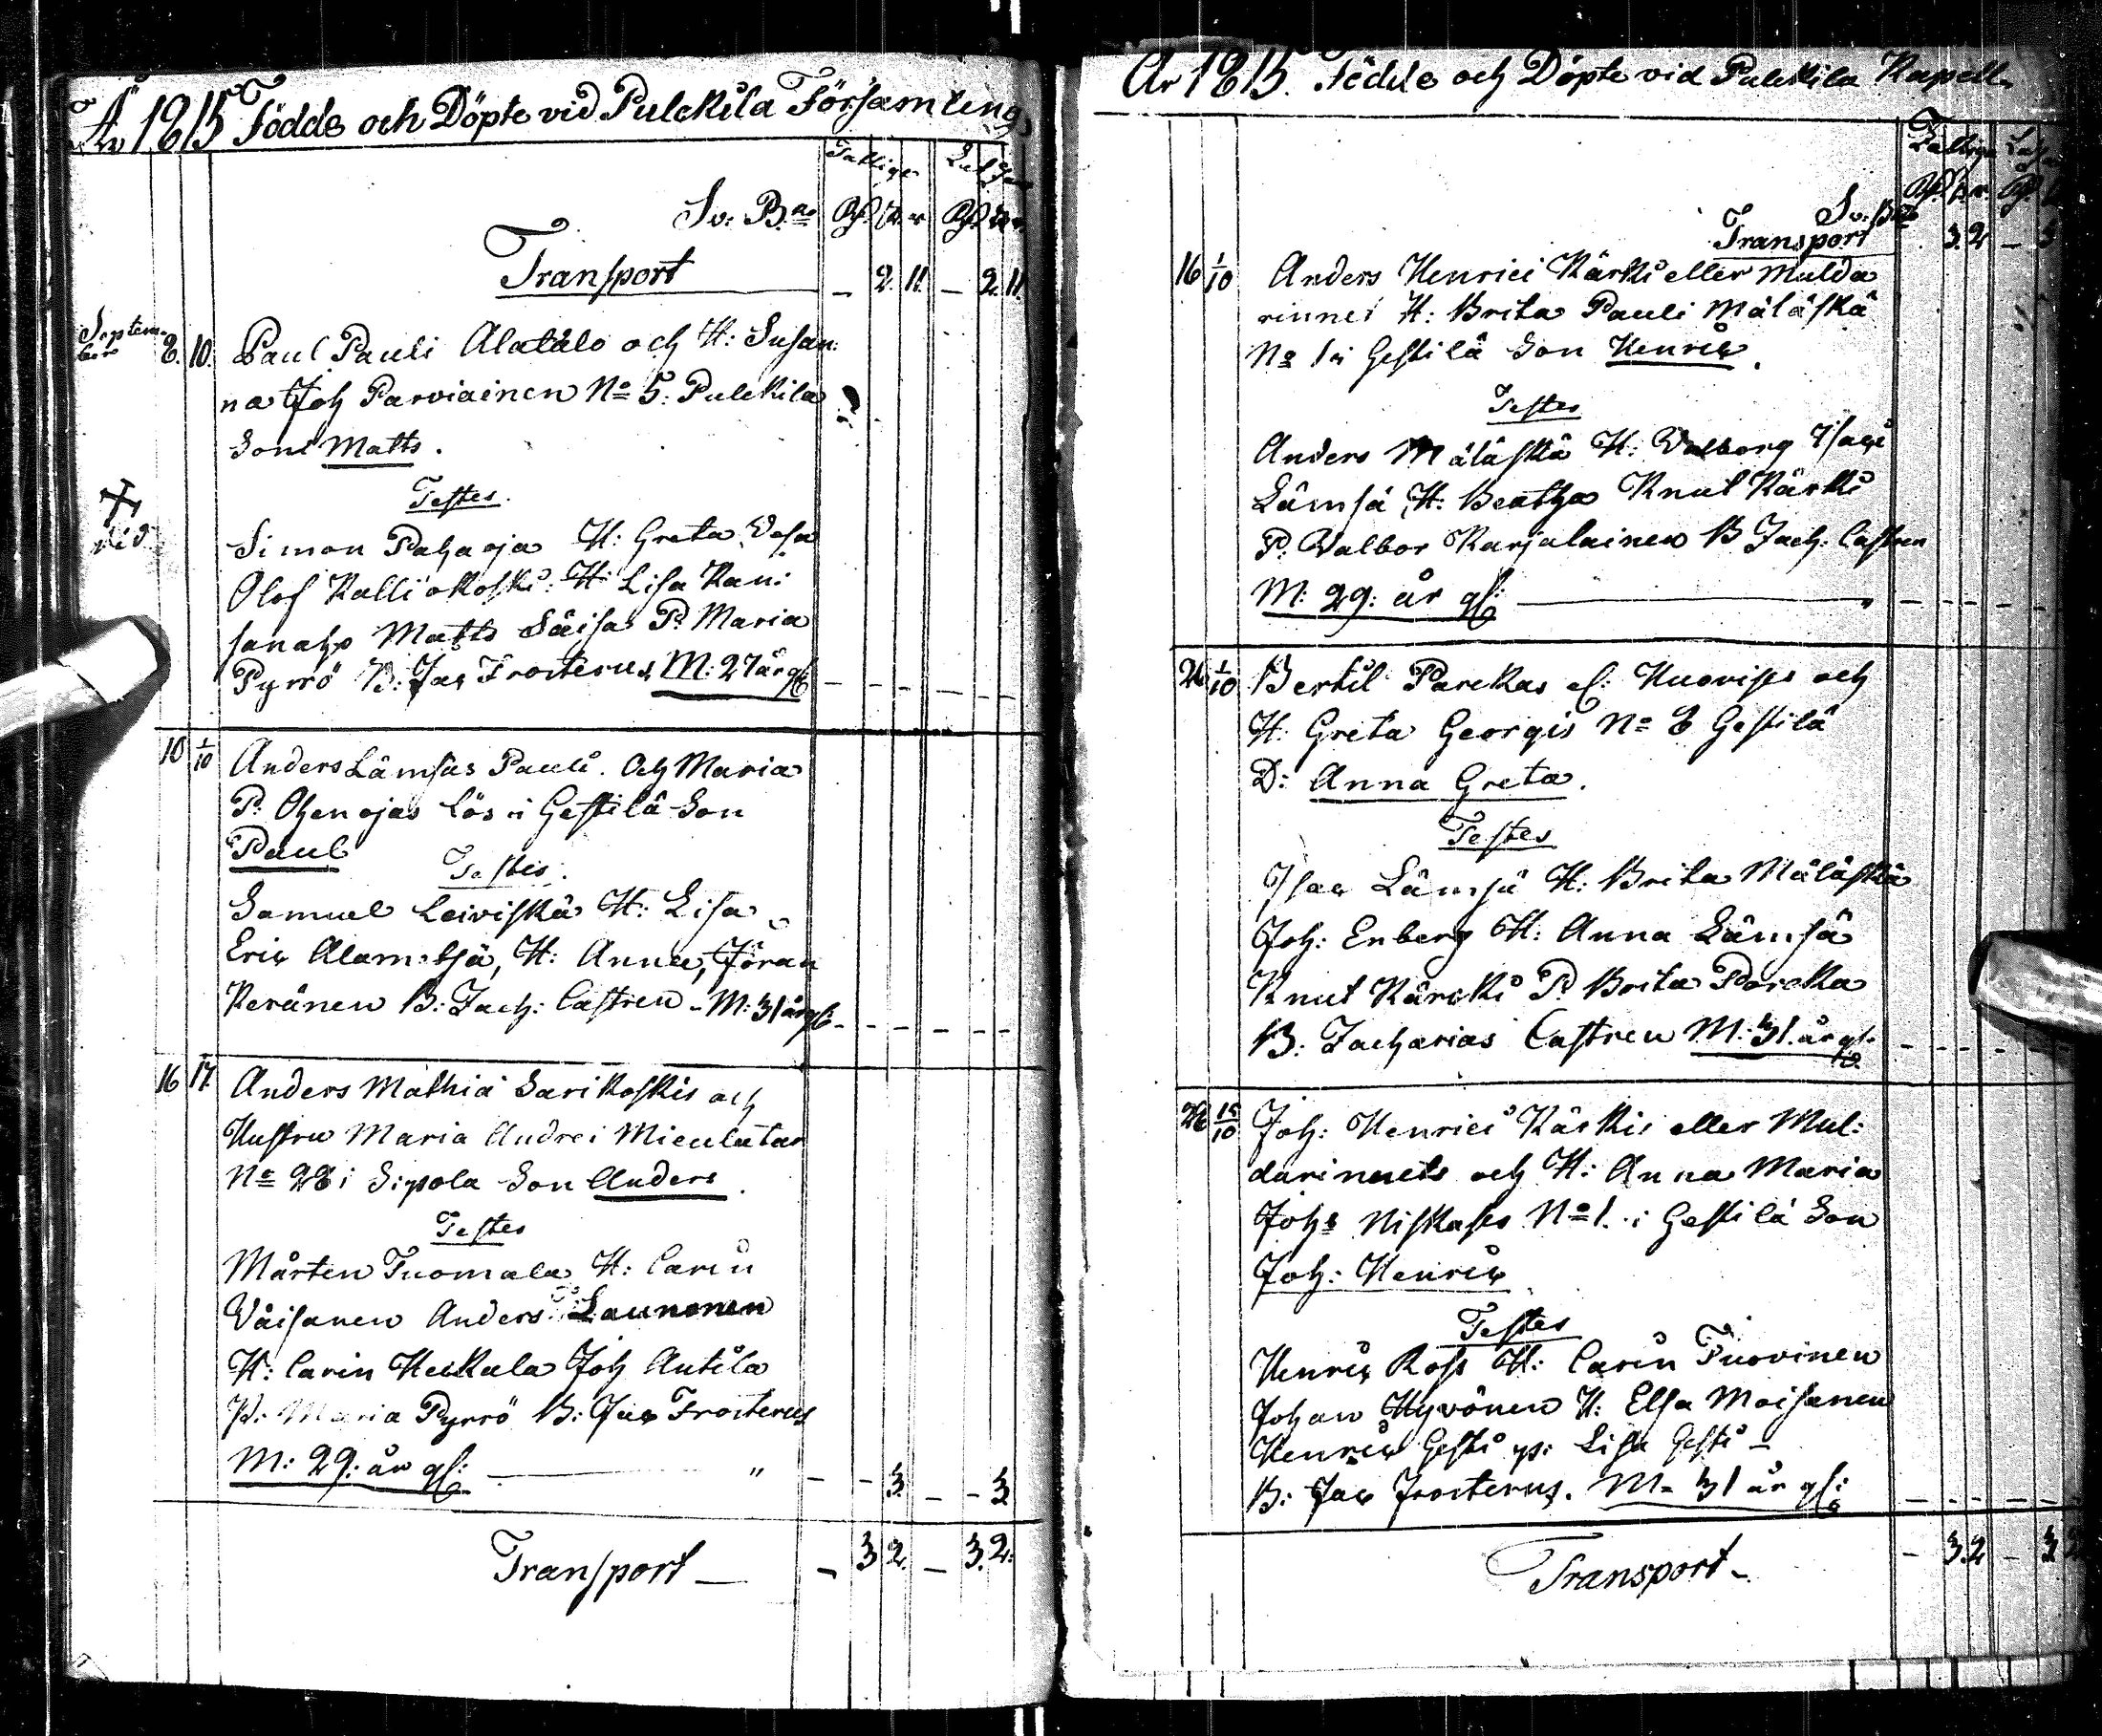 År 1815 Födde och Döpte vid Pulckila Församling
Fattige Lutkan
Sv: B:co Rf. s. r Rf. s. r.
Transport — 2. 11. — 2. 11.
Septem-
ber 8. 10. Paul Pauli Alatalo och H: Susan:
na Joh Parviainen No 5. Pulckila
Son Matts.
Testes.
död
Simon Pahaoja H: Greta Vasa
Olof Kalliokoski: H: Lisa Kani
sanaho Matts Säisä P. Maria
Pyrrö B: Jac Frosterus M: 27 år gl:
10 1/10 Anders Lämsäs Pauli. Och Maria
P. Ohenojas lös i Gestilä Son
Paul
Testes.
Samuel Leiviskä H: Lisa
Eric Alamettsä, H: Anna, Jöran
Keränen B: Zach: Castren - M: 31 år gl: - - - - -
16 17. Anders Mathiæ Sarikoskis och
Hustru Maria Andrei Miculatar
No 28 i Sipola Son Anders.
Testes
Mårten Tuomala H: Carin
Väisanen Anders Launonen
H: Carin Heikkala Joh Antila
P: Maria Pyrrö B: Jac Frosterus
M: 29: år gl: — " - - 3. - - 3
Transport — - 3 2. - 3. 2.
År 1815. Födde och Döpte vid Pulckila Kapell.
Fattige
Sv: B:co
Transport 3. 2 — 3
16 1/10 Anders Henrici Kärki eller Mulda
rinnes H: Brita Pauli Mäläskä
No 1 i Gestilä Son Henric.
Testes
Anders Mäläskä H: Valborg Isaci
Lämsä H: Beatha Knut Kärki
P. Valbor Karjalainen B Zach: Castren
M: 29: år gl: — " - - - - -
26 1/10 Bertil Parckas el: Huovises och
H: Greta Georgis No 8 Gestilä
D: Anna Greta.
Testes
Isac Lämsä H: Brita Mäläskä
Joh: Enberg H: Anna Lämsä
Knut Kärcki P. Brita Parcka
B: Zacharias Castren M: 31. år gl: - - - -
26 15/10 Joh: Henrici Kärkis eller Mul:
darinnets och H: Anna Maria
Johs Niskases No 1. i Gestilä Son
Joh: Henric
Testes
Henric Ross H: Carin Tuovinen
Johan Hyvönen H: Elsa Moisanen
Henric Gesti ps: Lisa Gesti —
B: Jac Frosterus. M- 31 år gl: - - - -
Transport - — 3. 2 — 3 2